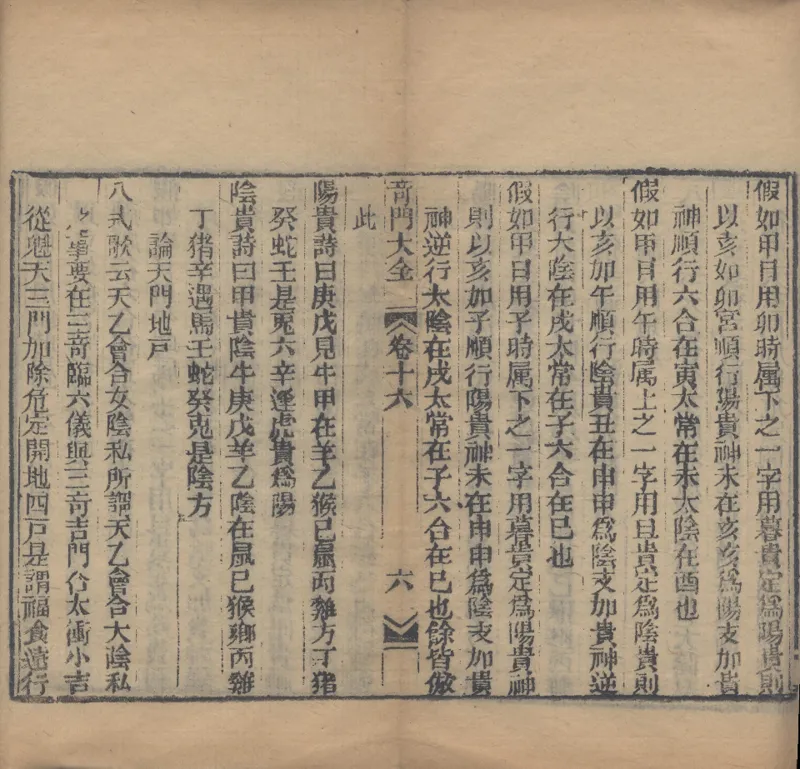 假如甲日用卯時属下之一字用暮貴定為陽貴則
以亥加卯宮順行陽貴神未在亥亥為陽支加貴
神順行六合在寅太常在未太陰在酉也
假如甲日用午時属上之一字用旦貴定為陰貴則
以亥加午順行陰貴丑在申申為陰支加貴神逆
行大陰在戌太常在子六合在巳也
假如甲日用子時属下之一字用暮貴定為陽貴神
則以亥加子順行陽貴神未在申申為陰支加貴
神逆行太陰在戌太常在子六合在巳也餘皆倣
此
奇門大全 卷十六 六
陽貴詩曰庚戊見牛甲在羊乙猴己鼠丙雞方丁猪
癸蛇壬是兎六辛逢虎貴為陽
陰貴詩曰甲貴陰牛庚戊羊乙陰在鼠己猴鄉丙雞
丁猪辛遇馬壬蛇癸兎是陰方
論天門地戸
八式歌云天乙會合女陰私所謂天乙會合大陰私
之事要在三奇臨六儀與三奇吉門合太衝小吉
從魁天三門加除危定開地四戸是謂福食遠行